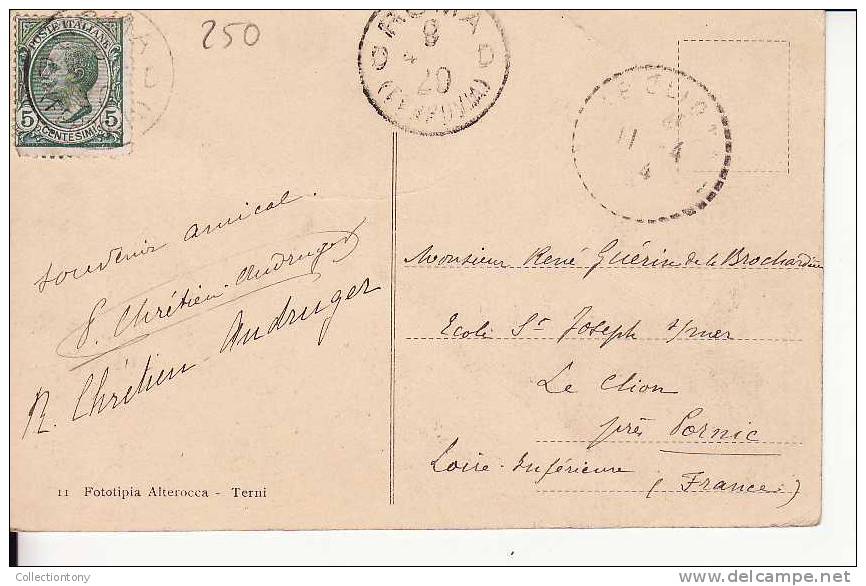 250
POSTE ITALIANE
5 CENTESIMI 5
ROMA
8
4
20
(FERROVIA)
LE CLION
11 - 4
4
souvenir amical.
P. Chrétien Andruger
R. Chrétien Andruger
Monsieur René Guérin de la Brochardière
Ecole St Joseph s/mer
Le Clion
près Pornic
Loire-Inférieure
(France)
11 Fototipia Alterocca - Terni
Collectiontony
www.delcampe.net